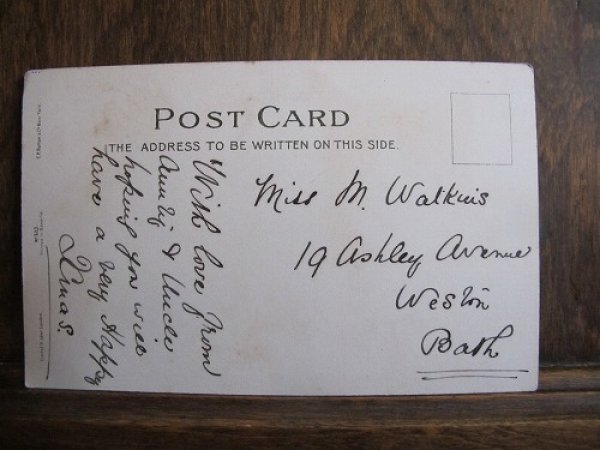 POST CARD
THE ADDRESS TO BE WRITTEN ON THIS SIDE.
Miss M. Watkins
19 Ashley Avenue
Weston
Bath
With love from
Aunty & Uncle
hoping you will
have a very Happy
Xmas.